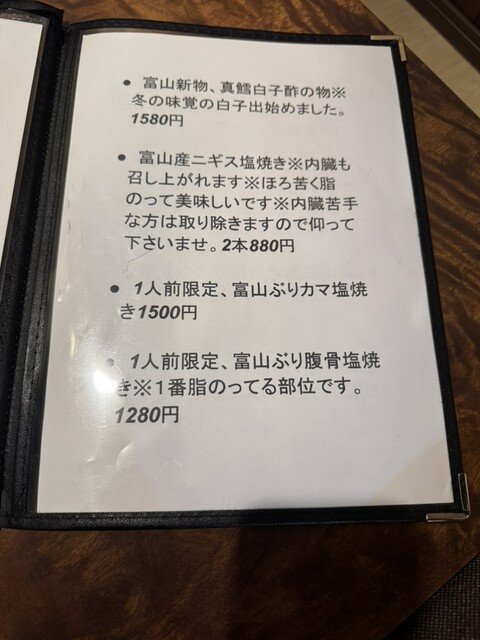 ● 富山新物、真鱈白子酢の物※
冬の味覚の白子出始めました。
1580円
● 富山産ニギス塩焼き※内臓も
召し上がれます※ほろ苦く脂
のって美味しいです※内臓苦手
な方は取り除きますので仰って
下さいませ。2本880円
● 1人前限定、富山ぶりカマ塩焼
き1500円
● 1人前限定、富山ぶり腹骨塩焼
き※１番脂のってる部位です。
1280円